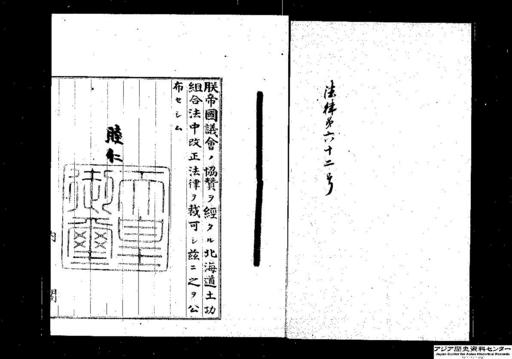 法律第六十二号
朕帝國議會ノ協贊ヲ經タル北海道土功
組合法中改正法律ヲ裁可シ茲ニ之ヲ公
布セシム
睦仁
天皇
御璽
内閣
アジア歴史資料センター
Japan Center for Asian Historical Records